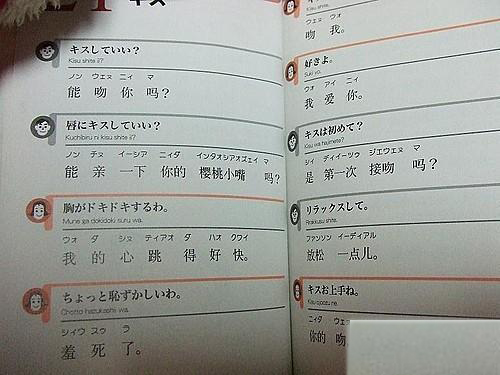 キス
キスしていい?
Kisu shite ii?
ノン ウェヌ ニィ マ
能 吻 你 吗?
唇にキスしていい?
Kuchibiru ni kisu shite ii?
ノン チヌ イーシア ニィダ インタオシアオズェイ マ
能 亲 一下 你的 樱桃小嘴 吗?
胸がドキドキするわ。
Mune ga dokidoki suru wa.
ウォ ダ シヌ ティアオ ダ ハオ クワイ
我 的 心 跳 得 好 快。
ちょっと恥ずかしいわ。
Chotto hazukashii wa.
シィウ スゥ ラ
羞 死 了。
Kisu shite.
ウェヌ ウォ
吻 我。
好きよ。
Suki yo.
ウォ アイ ニィ
我 爱 你。
キスは初めて?
Kisu wa hajimete?
シィ ディイーツゥ ジエウェヌ マ
是 第一次 接吻 吗?
リラックスして。
Rirakkusu shite.
ファンソン イーディアル
放松 一点儿。
キスお上手ね。
Kisu ojozu ne.
ニィダ ウェヌ
你的 吻